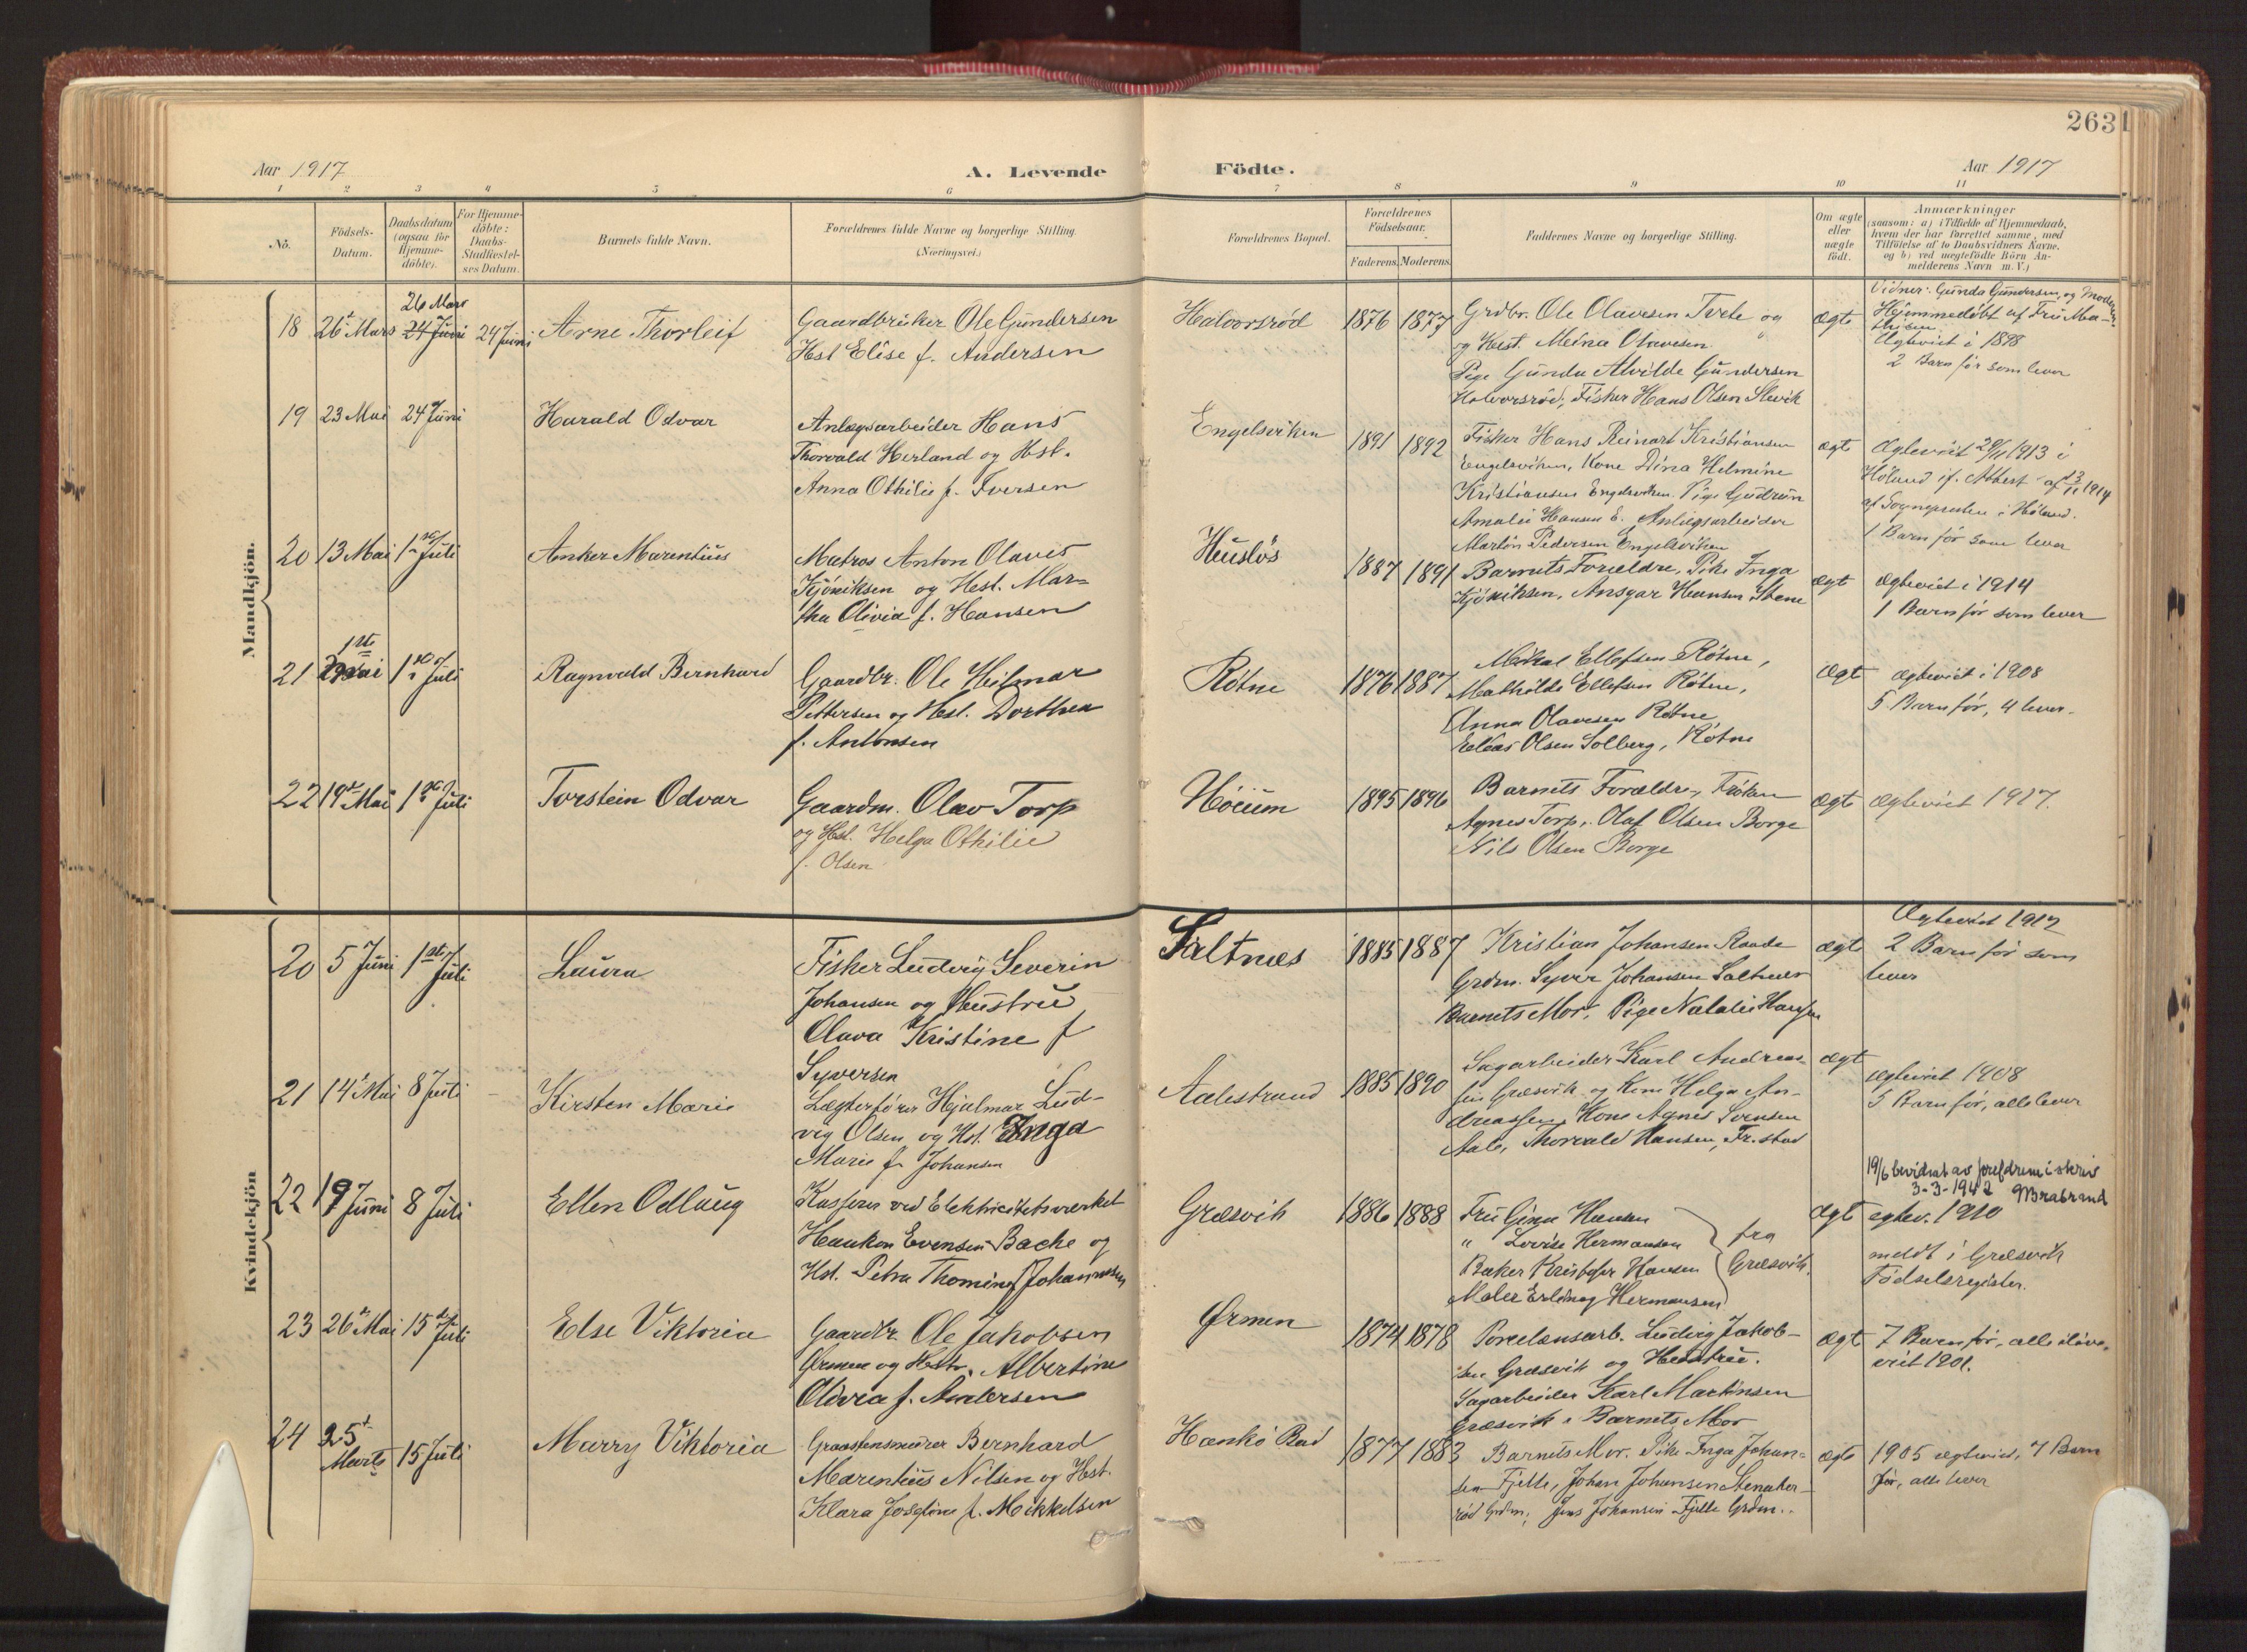 2631
Aar 1917
A. Levende
Födte.
Aar 1917
1 2 3 4 5 6 7 8 9 10 11
Nö.
Födsels-
Datum.
Daabsdatum
(ogsaa for
Hjemme-
döbte).
For Hjemme-
döbte:
Daabs-
Stadfæstel-
ses Datum.
Barnets fulde Navn.
Forældrenes fulde Navne og borgerlige Stilling.
(Næringsvei.)
Forældrenes Bopæl.
Forældrenes
Födselsaar.
Faderens. Moderens.
Faddernes Navne og borgerlige Stilling.
Om ægte
eller
uægte
födt.
Anmærkninger
(saasom: a) i Tilfælde af Hjemmedaab,
hvem der har forrettet samme, med
Tilföielse af to Daabsvidners Navne.
og b) ved uægtefödte Börn An-
melderens Navn m. V.)
Mandkjön.
18
26 Mars
26 Mars
24 Juni
24 Juni
Arne Thorleif
Gaardbruker Ole Gundersen
Hst Elise f. Andersen
Halvorsrød
1876
1877
Grdbr. Ole Olavesen Tvete og
og Hust. Meina Olavesen.
Pige Gunda Alvilde Gundersen
Halvorsrød, Fisker Hans Olsen Slevik
ægte
Vidner: Gunda Gundersen, og Moderen
Hjemmedøbt af Fru Ma-
thisen.
Ægteviet i 1898
2 Barn før som lever
19
23 Mai
24 Juni
Harald Odvar
Anlægsarbeider Hans
Thorvald Herland og Hst.
Anna Othilie f. Iversen
Engelsviken
1891
1892
Fisker Hans Reinart Kristiansen
Engelsviken, Kone Dina Helmine
Kristiansen Engelsviken. Pige Gudrun
Amalie Hansen E. Anlægsarbeider
Martin Pedersen Engelsviken
ægt
Ægteviet 29/11 1913 i
Høland if. Attest af 13/11 1914
af Sognepresten i Høland.
1 Barn før som lever
20
13 Mai
1ste Juli
Anker Marentius
Matros Anton Olaves
Kjøniksen og Hust. Mar=
tha Olivia f. Hansen
Husløs
1887
1891
Barnets Forældre, Pike Inga
Kjøniksen, Ansgar Hansen Stene
ægt
ægteviet i 1914
1 Barn før som lever
21
1ste
Mai
1ste Juli
Ragnvald Bernhard
Gaardbr. Ole Hilmar
Pettersen og Hst. Dorthea
f. Antonsen
Røtne
1876
1887
Mikal Ellefsen Røtne,
Mathilde Ellefsen Røtne,
Anna Olavesen Røtne
Olsen Solberg, Røtne
Ægt
ægteviet i 1908
5 Barn før, 4 lever.
22
19 Mai
1ste Juli
Torstein Odvar
Gaardm. Olav Torp
og Hst. Helga Othilie
f. Olsen
Høium
1895
1896
Barnets Forældre, Frøken
Agnes Torp. Olaf Olsen Borge
Nils Olsen Borge
ægt
ægteviet 1917.
Kvindekjön
20
5 Juni
1ste Juli
Laura
Fisker Ludvig Severin
Johansen og Hustru
Olava Kristine f
Syversen
Saltnæs
1885
1887
Kristian Johansen Raade
Grdm. Syver Johansen Saltnes
Barnets Mor, Pige Natalie Hansen
ægt
Ægteviet 1912
2 Barn før som
lever
21
14 Mai
8 Juli
Kirsten Marie
Lægterfører Hjalmar Lud-
vig Olsen og Hst. Inga
Marie f. Johansen
Aalestrand
1885
1890
Sagarbeider Karl Andreas-
sen Græsvik og Kone Helga An-
dreassen, Kone Agnes Svensen
Aale, Thorvald Hansen, Fr.stad
ægt
ægteviet 1908
5 Barn før, alle lever
22
19 Juni
8 Juli
Ellen Odlaug
Kasserer ved Elektricitetsverket
Haakon Evensen Bache og
Hst. Petra Thomine f. Johannessen
Græsvik
1886
1888
Fru Gina Hansen
" Lovise Hermansen
Baker Kristofer Hansen
Maler Erling Hermansen
fra
Græsvik.
ægt
19/6 bevidnet av foreldrene i skriv
3-3-1942 Brabrand
egtev. 1910
meldt i Græsvik
Fødselsregister.
23
26 Mai
15de Juli
Else Viktoria
Gaardbr. Ole Jakobsen
Ørmen og Hstr. Albertine
Oldvia f. Andersen
Ørmen
1874
1878
Porcelænsarb. Ludvig Jakob-
sen Græsvik og Hustru.
Sagarbeider Karl Martinsen
Græsvik. Barnets Mor
ægt
7 Barn før, alle ilive.
viet 1901.
24
25
Marts
15 Juli
Marry Viktoria
Graastensmurer Bernhard
Marentius Nilsen og Hst.
Klara Josefine f. Mikkelsen
Hankø Bad
1877
1883
Barnets Mor. Pike Inga Johan=
sen Fjelle, Johan Johansen Stenaker-
rød Grdm; Jens Johansen Fjelle Grdm.
ægt
1905 ægteviet, 7 Barn
før, alle lever